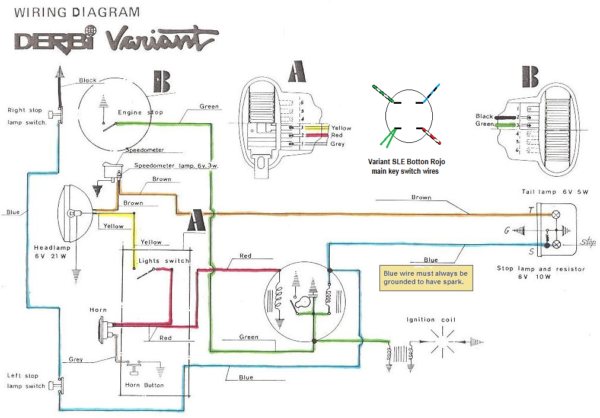 WIRING DIAGRAM
DERBI Variant
A
B
B
Black
Right stop
lamp switch.
Engine stop
Green
Yellow
Red
Grey
Variant SLE Botton Rojo
main key switch wires
Black
Green
Speedometer
Speedometer lamp, 6v. 3w.
Brown
Brown
Brown
Tail lamp 6V 5W
T
G
S
stop
Blue
Yellow
A
Headlamp
6V 21W
Yellow
Lights switch
Red
Blue
Blue wire must always be
grounded to have spark.
Stop lamp and resistor
6V 10W
Horn
Red
Green
Ignition coil
Grey
Blue
Left stop
lamp switch
Horn Button